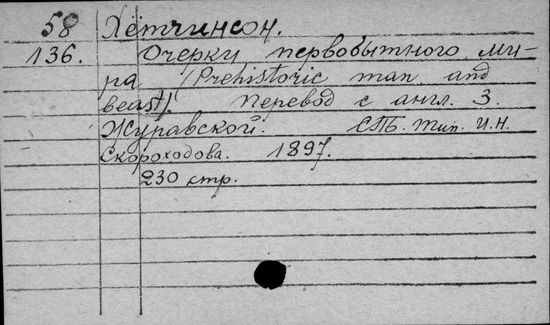 58 Хётчинсон.
136. Очерки первобытного ми-
ра (Prehistoric man and
beast). Перевод с англ. З.
Журавской. СПБ. тип. И.Н.
Скороходова. 1897.
230 стр.